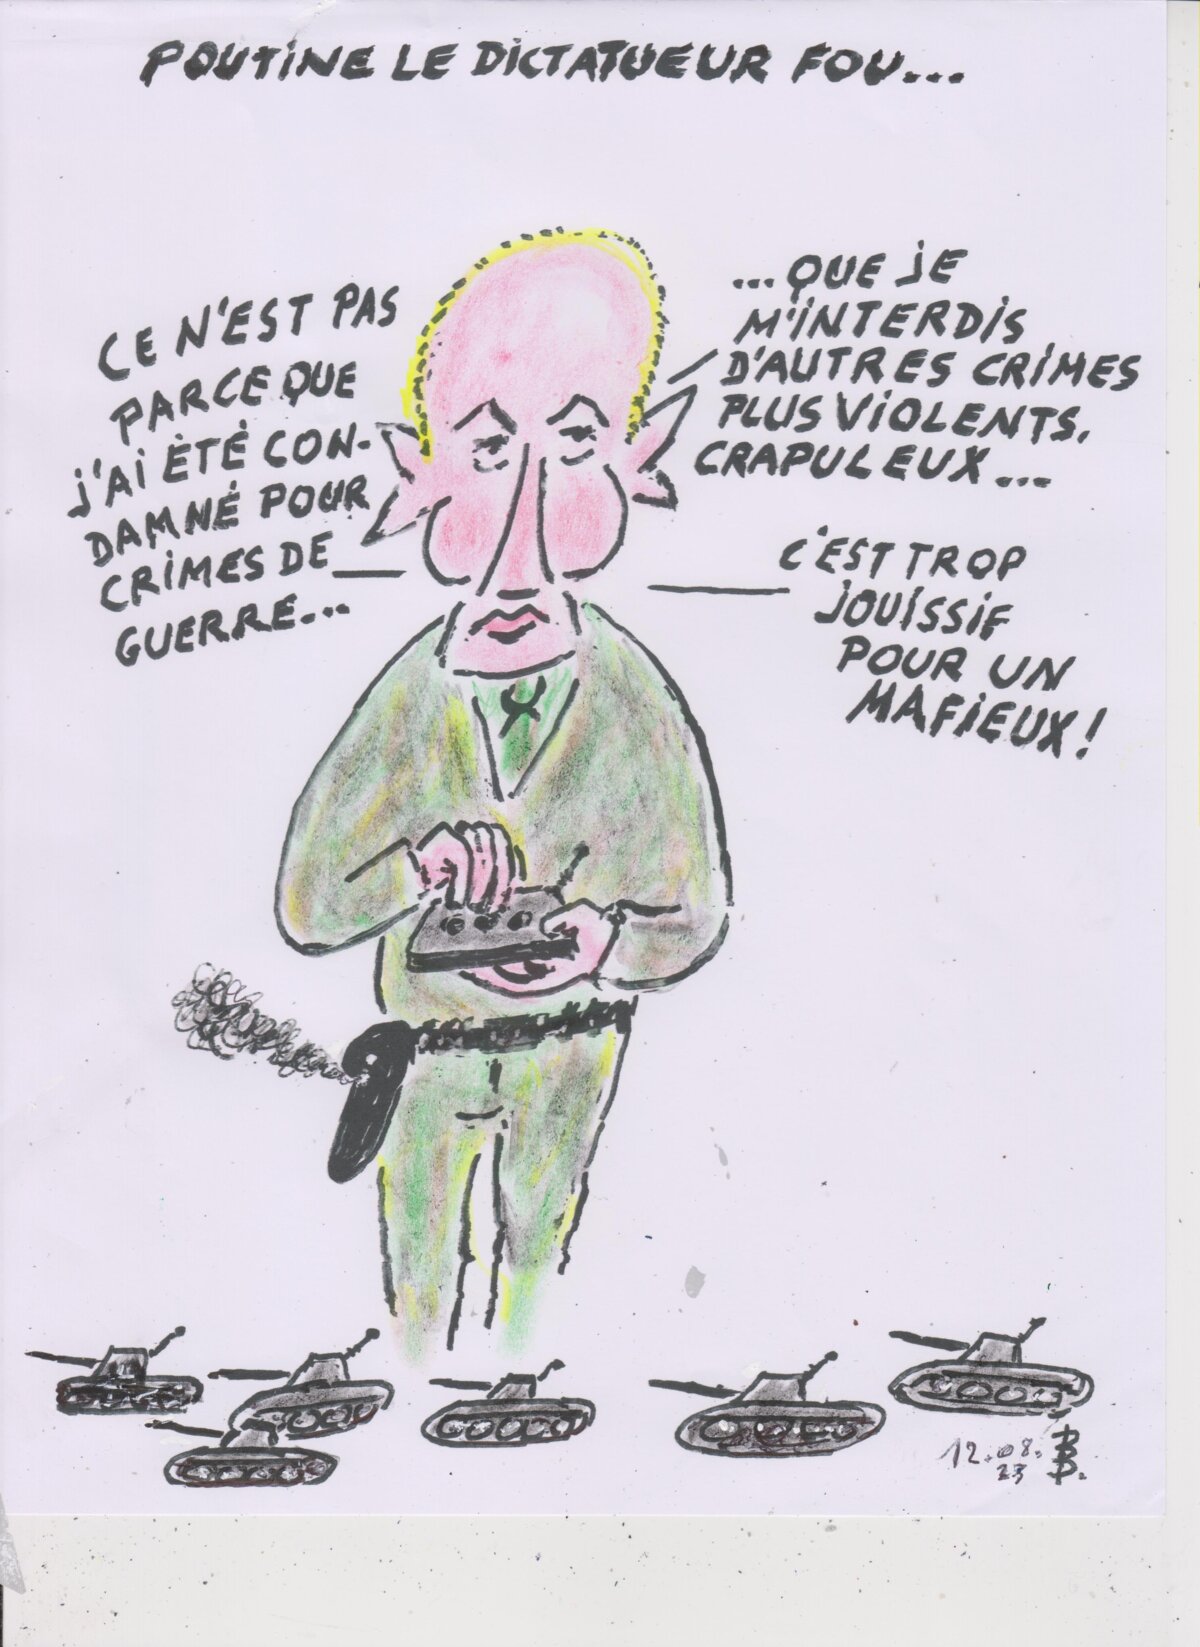 POUTINE LE DICTATUEUR FOU...
CE N'EST PAS
PARCE QUE
J'AI ÉTÉ CON-
DAMNÉ POUR
CRIMES DE
GUERRE...
...QUE JE
M'INTERDIS
D'AUTRES CRIMES
PLUS VIOLENTS,
CRAPULEUX...
C'EST TROP
JOUISSIF
POUR UN
MAFIEUX!
12.08.
23